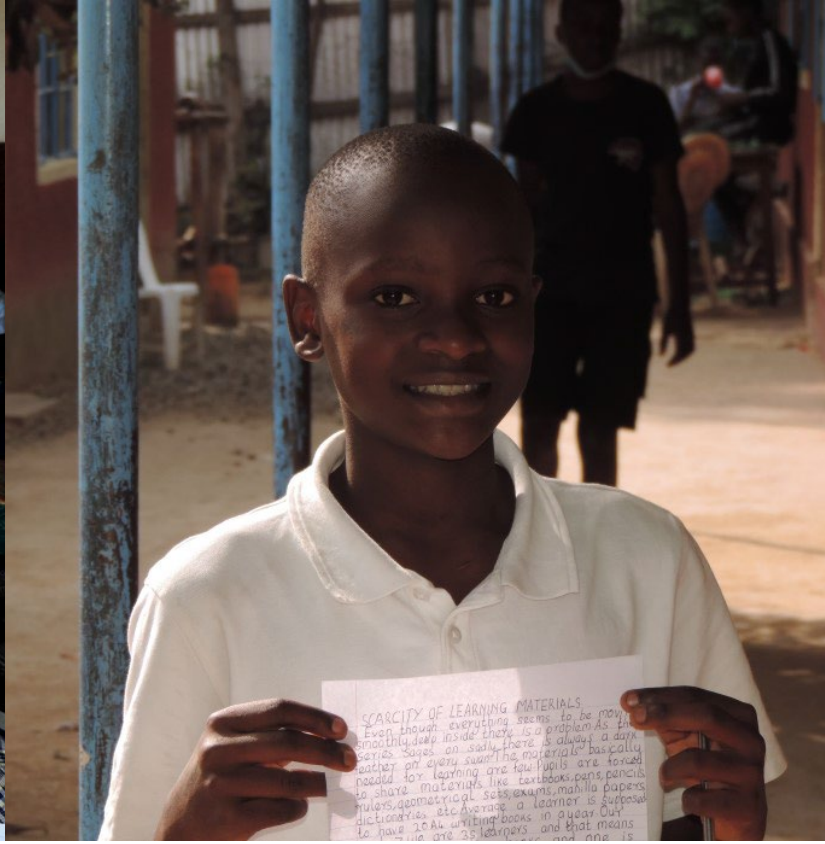 SCARCITY OF LEARNING MATERIALS
Even though everything seems to be
smoothly, deep inside there is a problem. As the
series sages on sadly, there is always a dark
feather on every swan. The materials basically
needed for learning are few. Pupils are forced
to share materials like textbooks, pens, pencils
rulers, geometrical sets, exams, manilla papers
dictionaries etc. Average a learner is supposed
to have 20 A4 writing books in a year. Our
we are 35 learners and that means
and one is